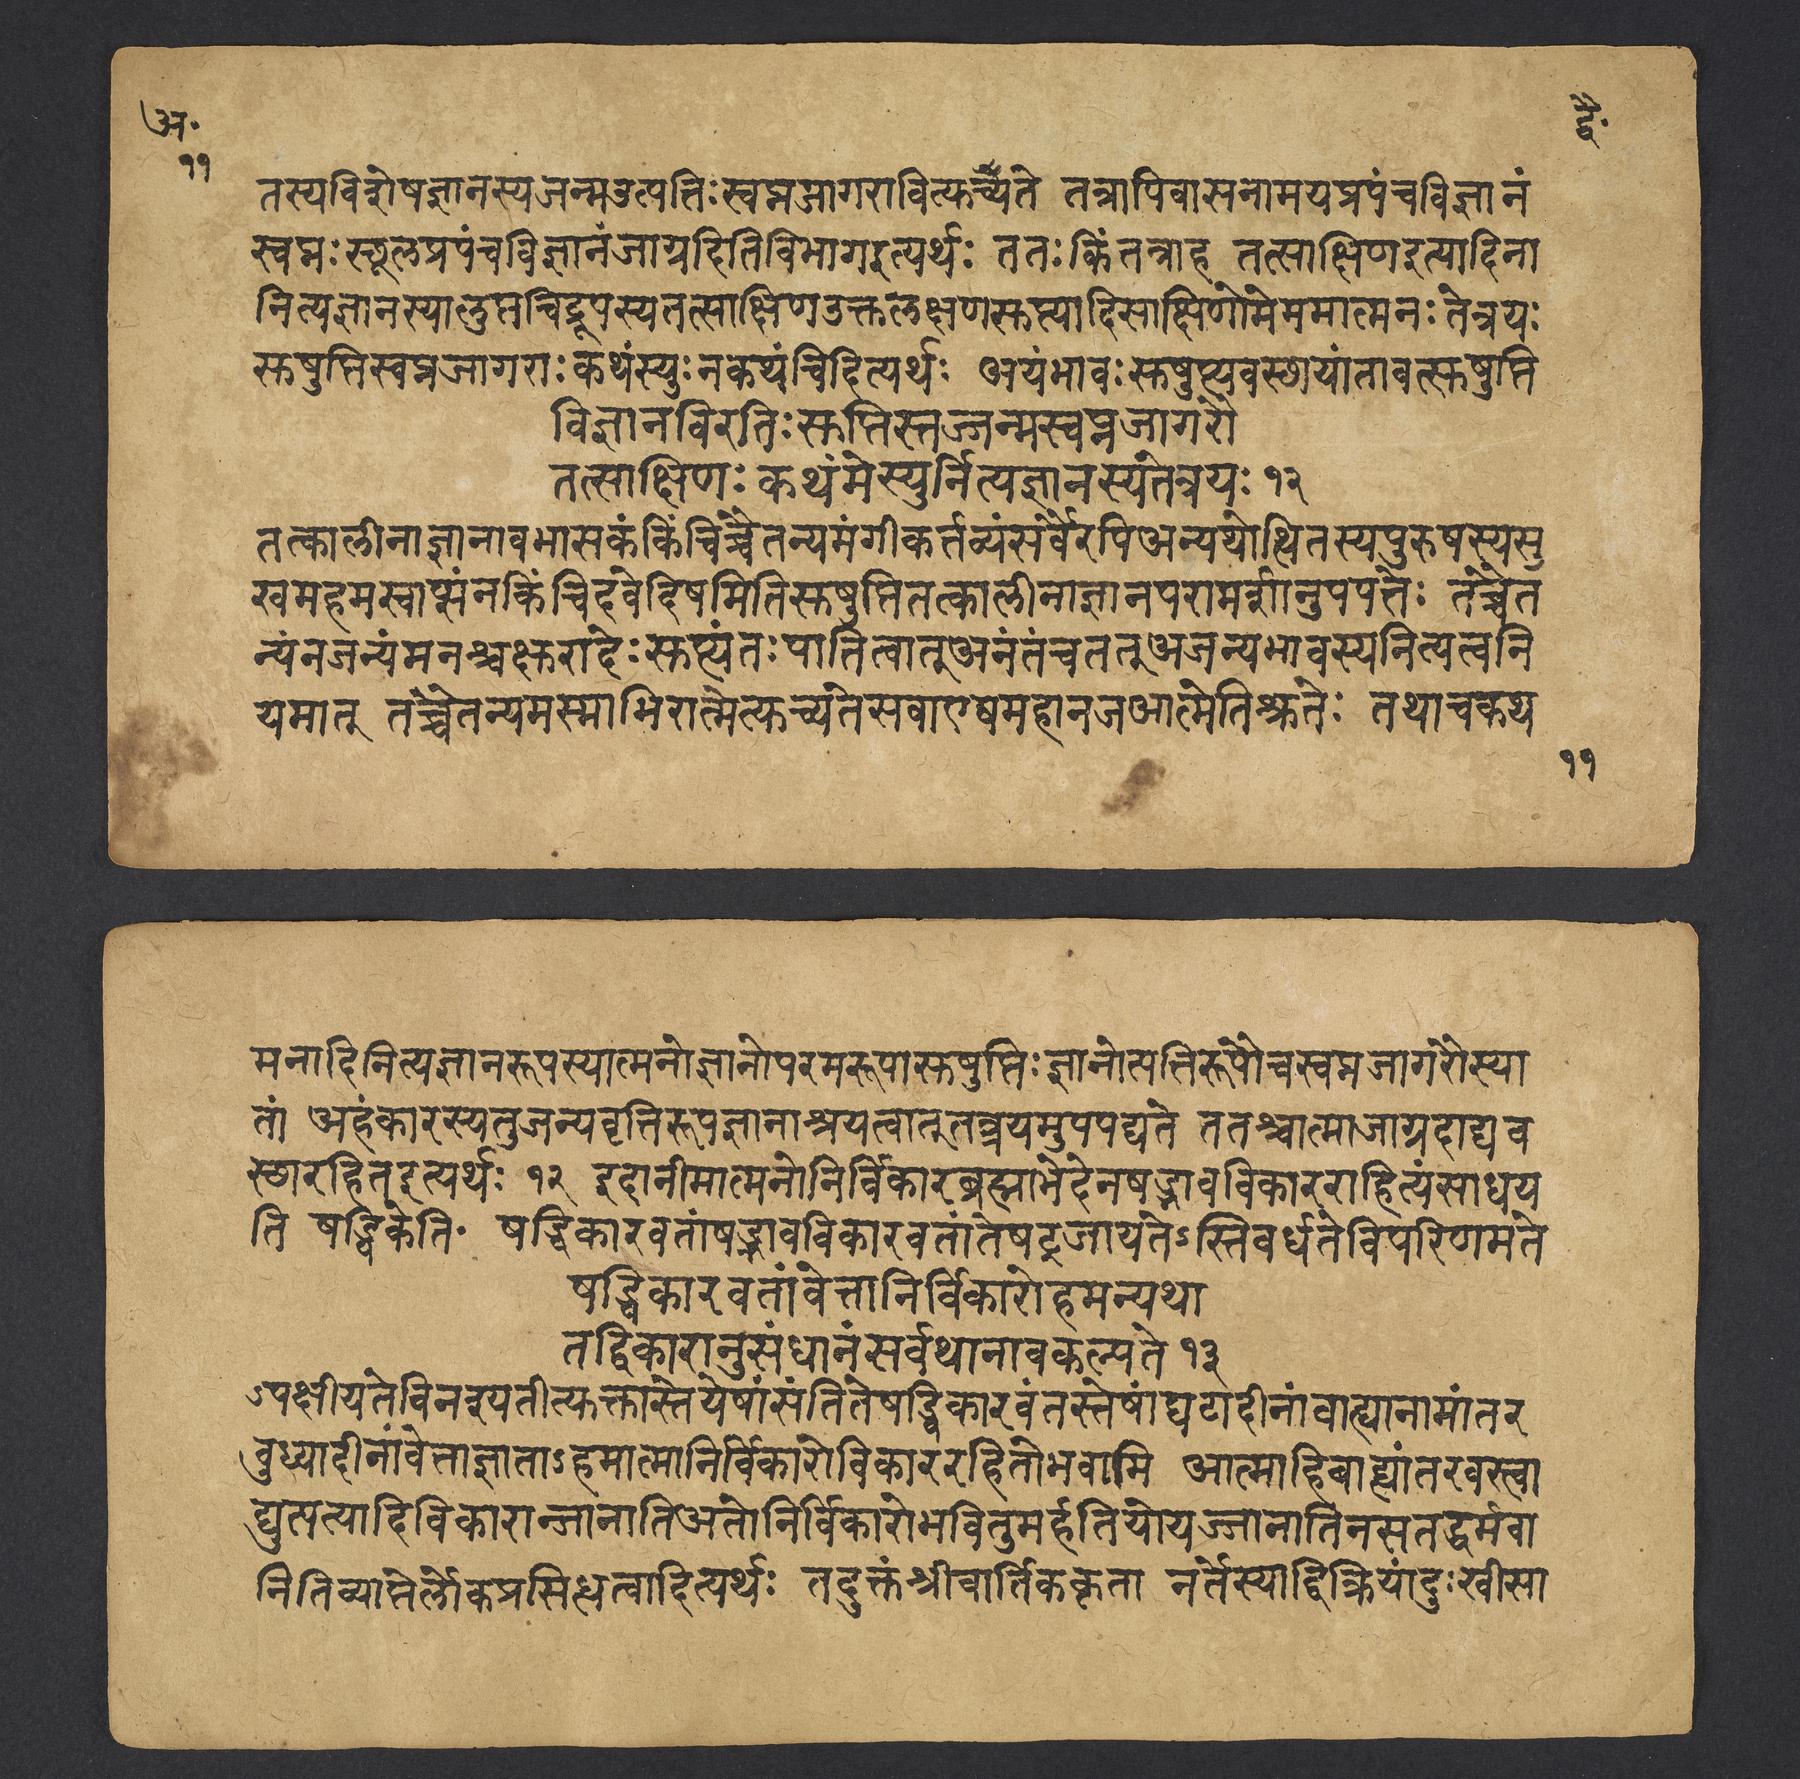 अ॰
द्वै॰
११
तस्यविशेषज्ञानस्यजन्मउत्पत्तिःस्वप्नजागरावित्युच्यते तत्रापिवासनामयप्रपंचविज्ञानं
स्वप्नःस्थूलप्रपंचविज्ञानंजाग्रदितिविभागइत्यर्थः ततःकिंतत्राह तत्साक्षिणइत्यादिना
नित्यज्ञानस्यालुप्तचिद्रूपस्यतत्साक्षिणउक्तलक्षणसुप्त्यादिसाक्षिणोमेममात्मनःतेत्रयः
सुषुप्तिस्वप्नजागराःकथंस्युःनकथंचिदित्यर्थः अयंभावःसुषुप्त्यवस्थायांतावत्सुषुप्ति
विज्ञानविरतिःसुप्तिस्तज्जन्मस्वप्नजागरौ
तत्साक्षिणःकथंमेस्युर्नित्यज्ञानस्यतेत्रयः१२
तत्कालीनाज्ञानावभासकंकिंचिच्चैतन्यमंगीकर्त्तव्यंसर्वैरपिअन्यथोत्थितस्यपुरुषस्यसु
खमहमस्वाप्संनकिंचिदवेदिषमितिसुषुप्तितत्कालीनाज्ञानपरामर्शानुपपत्तेः तच्चैत
न्यंनजन्यंमनश्चक्षुरादेःसुप्त्यंतःपातित्वात्अनंतंचतत्अजन्यभावस्यनित्यत्वनि
यमात् तच्चैतन्यमस्माभिरात्मेत्युच्यतेसवाएषमहानजआत्मेतिश्रुतेः तथाचकथ
११
मनादिनित्यज्ञानरूपस्यात्मनोज्ञानोपरमरूपासुषुप्तिःज्ञानोत्पत्तिरूपौचस्वप्नजागरौस्या
तां अहंकारस्यतुजन्यवृत्तिरूपज्ञानाश्रयत्वात्तत्त्रयमुपपद्यते ततश्चात्माजाग्रदाद्यव
स्थारहितइत्यर्थः १२ इदानीमात्मनोनिर्विकारब्रह्माभेदेनषड्भावविकारराहित्यंसाधय
ति षड्विकेति॰ षड्विकारवतांषड्भावविकारवतांतेषट्जायतेऽस्तिवर्धतेविपरिणमते
षड्विकारवतांवेत्तानिर्विकारोहमन्यथा
तद्विकारानुसंधानंसर्वथानावकल्पते१३
ऽपक्षीयतेविनश्यतीत्युक्तास्तेयेषांसंतितेषड्विकारवंतस्तेषांघटादीनांवाह्यानामांतर
वुध्यादीनांवेत्ताज्ञाताऽहमात्मानिर्विकारोविकाररहितोभवामि आत्माहिबाह्यांतरवस्त्वा
द्युत्पत्यादिविकारान्जानातिअतोनिर्विकारोभवितुमर्हतियोयज्जानातिनसतद्धर्मवा
नितिव्याप्तेर्लोकप्रसिध्धत्वादित्यर्थः तदुक्तंश्रीवार्तिककृता नर्तेस्याद्विक्रियांदुःखीसा